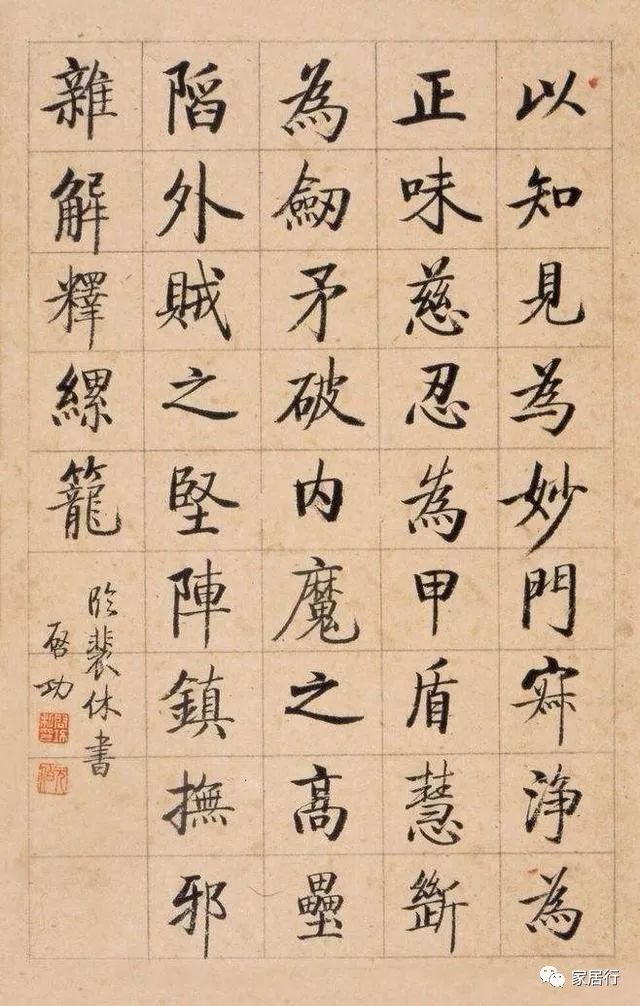 以知見為妙門寂淨為
正味慈忍為甲盾慧斷
為劒矛破內魔之高壘
陷外賊之堅陣鎮撫邪
雜解釋縲籠
臨裴休書
啓功
家居行